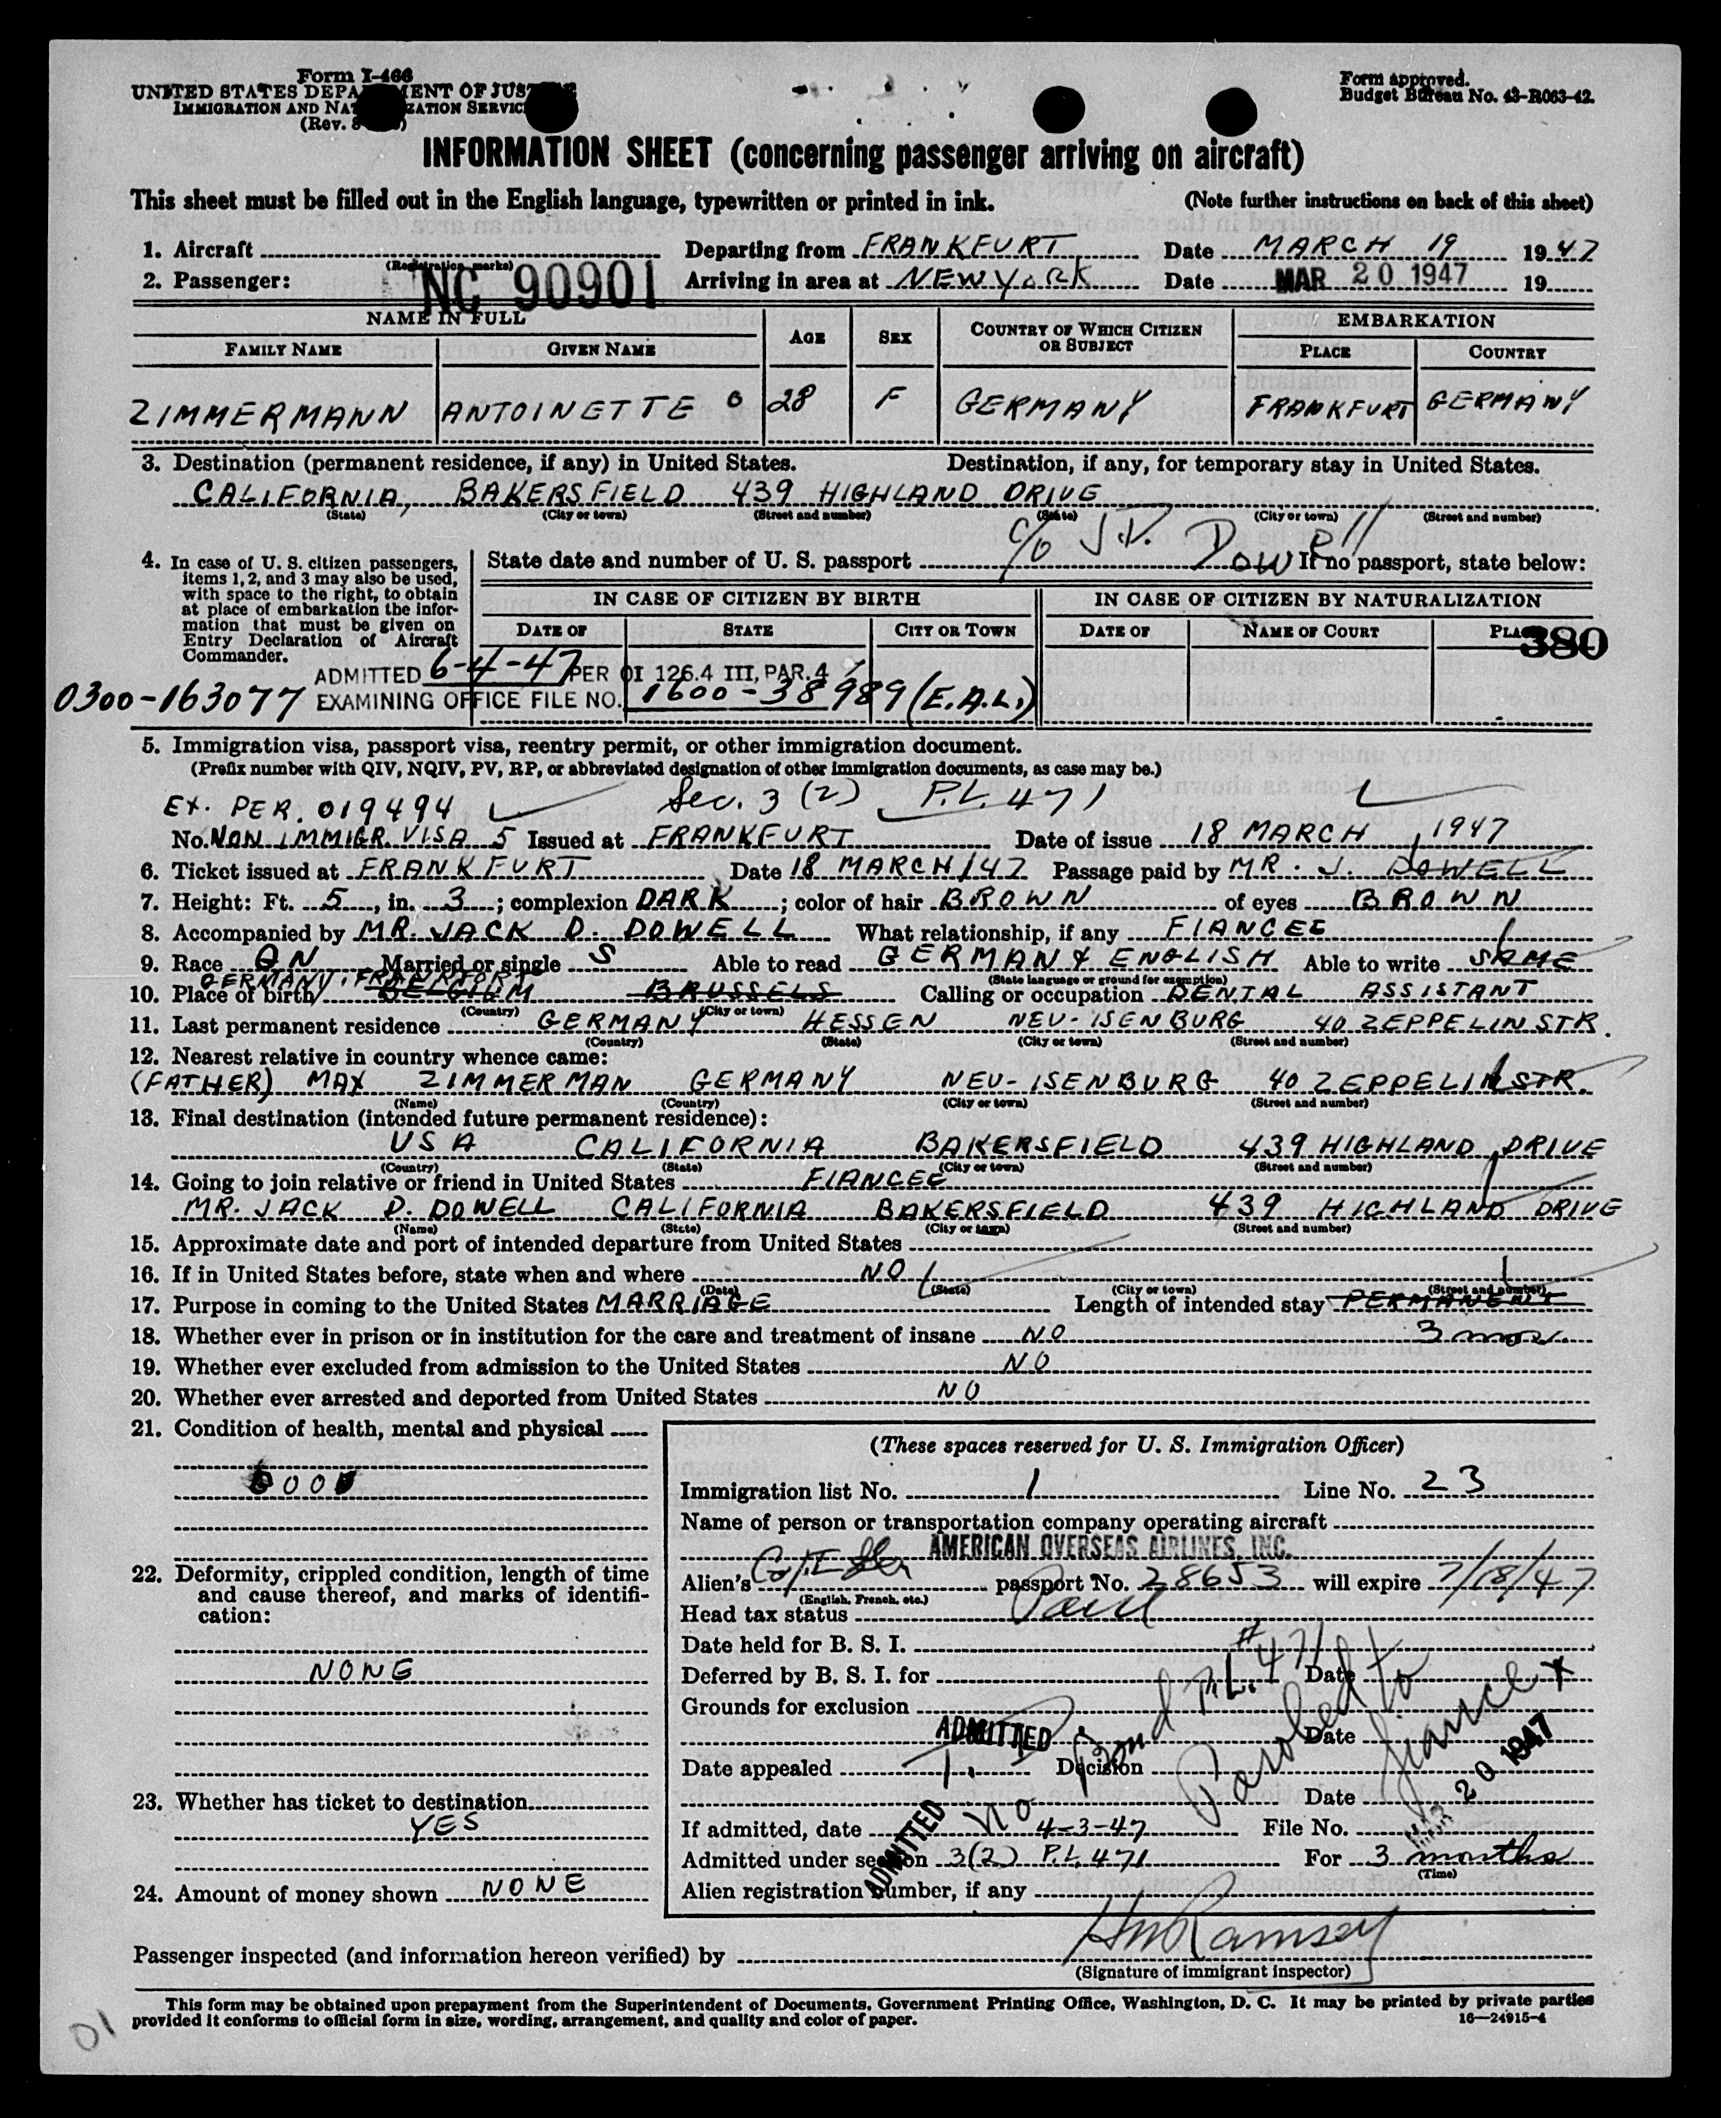 Form I-466
UNITED STATES DEPA MENT OF JUS
IMMIGRATION AND NA ZATION SERVIC
(Rev. )
Form approved.
Budget Bureau No. 43-R063-42.
INFORMATION SHEET (concerning passenger arriving on aircraft)
This sheet must be filled out in the English language, typewritten or printed in ink. (Note further instructions on back of this sheet)
1. Aircraft Departing from FRANKFURT Date MARCH 19 1947
(Registration marks)
2. Passenger: NC 90901 Arriving in area at NEW YORK Date MAR 20 1947 19
NAME IN FULL AGE SEX COUNTRY OF WHICH CITIZEN OR SUBJECT EMBARKATION
FAMILY NAME GIVEN NAME PLACE COUNTRY
ZIMMERMANN ANTOINETTE O 28 F GERMANY FRANKFURT GERMANY
3. Destination (permanent residence, if any) in United States. Destination, if any, for temporary stay in United States.
CALIFORNIA, BAKERSFIELD 439 HIGHLAND DRIVE
(State) (City or town) (Street and number) (State) (City or town) (Street and number)
c/o J.D. Dowell
4. In case of U. S. citizen passengers, items 1, 2, and 3 may also be used, with space to the right, to obtain at place of embarkation the information that must be given on Entry Declaration of Aircraft Commander.
State date and number of U. S. passport If no passport, state below:
IN CASE OF CITIZEN BY BIRTH IN CASE OF CITIZEN BY NATURALIZATION
DATE OF STATE CITY OR TOWN DATE OF NAME OF COURT PLACE
380
ADMITTED 6-4-47 PER OI 126.4 III, PAR. 4
0300-163077 EXAMINING OFFICE FILE NO. 1600-38989 (E.A.L.)
5. Immigration visa, passport visa, reentry permit, or other immigration document.
(Prefix number with QIV, NQIV, PV, RP, or abbreviated designation of other immigration documents, as case may be.)
EX. PER. 019494 Sec. 3 (2) P.L. 471
No. NON IMMIGR. VISA 5 Issued at FRANKFURT Date of issue 18 MARCH, 1947
6. Ticket issued at FRANKFURT Date 18 MARCH/47 Passage paid by MR. J. DOWELL
7. Height: Ft. 5, in. 3; complexion DARK; color of hair BROWN of eyes BROWN
8. Accompanied by MR. JACK D. DOWELL What relationship, if any FIANCEE
9. Race ON Married or single S Able to read GERMAN & ENGLISH Able to write SAME
(State language or ground for exemption)
GERMANY, FRANKFORT
10. Place of birth BELGIUM BRUSSELS Calling or occupation DENTAL ASSISTANT
(Country) (City or town)
11. Last permanent residence GERMANY HESSEN NEU-ISENBURG 40 ZEPPELINSTR.
(Country) (State) (City or town) (Street and number)
12. Nearest relative in country whence came:
(FATHER) MAX ZIMMERMAN GERMANY NEU-ISENBURG 40 ZEPPELINSTR.
(Name) (Country) (City or town) (Street and number)
13. Final destination (intended future permanent residence):
USA CALIFORNIA BAKERSFIELD 439 HIGHLAND DRIVE
(Country) (State) (City or town) (Street and number)
14. Going to join relative or friend in United States FIANCEE
MR. JACK D. DOWELL CALIFORNIA BAKERSFIELD 439 HIGHLAND DRIVE
(Name) (State) (City or town) (Street and number)
15. Approximate date and port of intended departure from United States
16. If in United States before, state when and where NO
(Date) (State) (City or town) (Street and number)
17. Purpose in coming to the United States MARRIAGE Length of intended stay PERMANENT
18. Whether ever in prison or in institution for the care and treatment of insane NO 3 mos.
19. Whether ever excluded from admission to the United States NO
20. Whether ever arrested and deported from United States NO
21. Condition of health, mental and physical
GOOD
22. Deformity, crippled condition, length of time and cause thereof, and marks of identification:
NONE
23. Whether has ticket to destination
YES
24. Amount of money shown NONE
(These spaces reserved for U. S. Immigration Officer)
Immigration list No. 1 Line No. 23
Name of person or transportation company operating aircraft
AMERICAN OVERSEAS AIRLINES, INC.
Alien's passport No. 28653 will expire 7/18/47
(English, French, etc.)
Head tax status Paid
Date held for B. S. I.
Deferred by B. S. I. for Date
Grounds for exclusion
ADMITTED Date
Date appealed Decision
Date
No Bond P.L. # 471
Paroled to fiance
MAR 20 1947
If admitted, date 4-3-47 File No.
ADMITTED
Admitted under section 3(2) P.L. 471 For 3 months
(Time)
Alien registration number, if any
Passenger inspected (and information hereon verified) by HM Ramsey
(Signature of immigrant inspector)
This form may be obtained upon prepayment from the Superintendent of Documents, Government Printing Office, Washington, D. C. It may be printed by private parties
provided it conforms to official form in size, wording, arrangement, and quality and color of paper. 16—24915-4
10